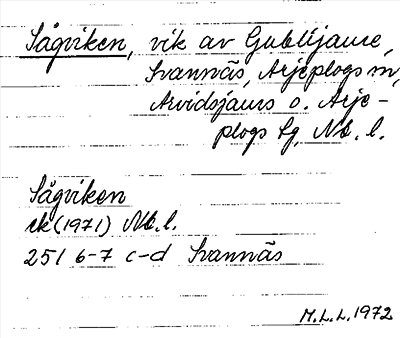 Sågviken, vik av Gublijaure,
Svannäs, Arjeplogs sn,
Arvidsjaurs o. Arje-
plogs tg, Nb. l.
Sågviken
ek (1971) Nb. l.
25 I 6-7 c-d Svannäs
M.L.L. 1972